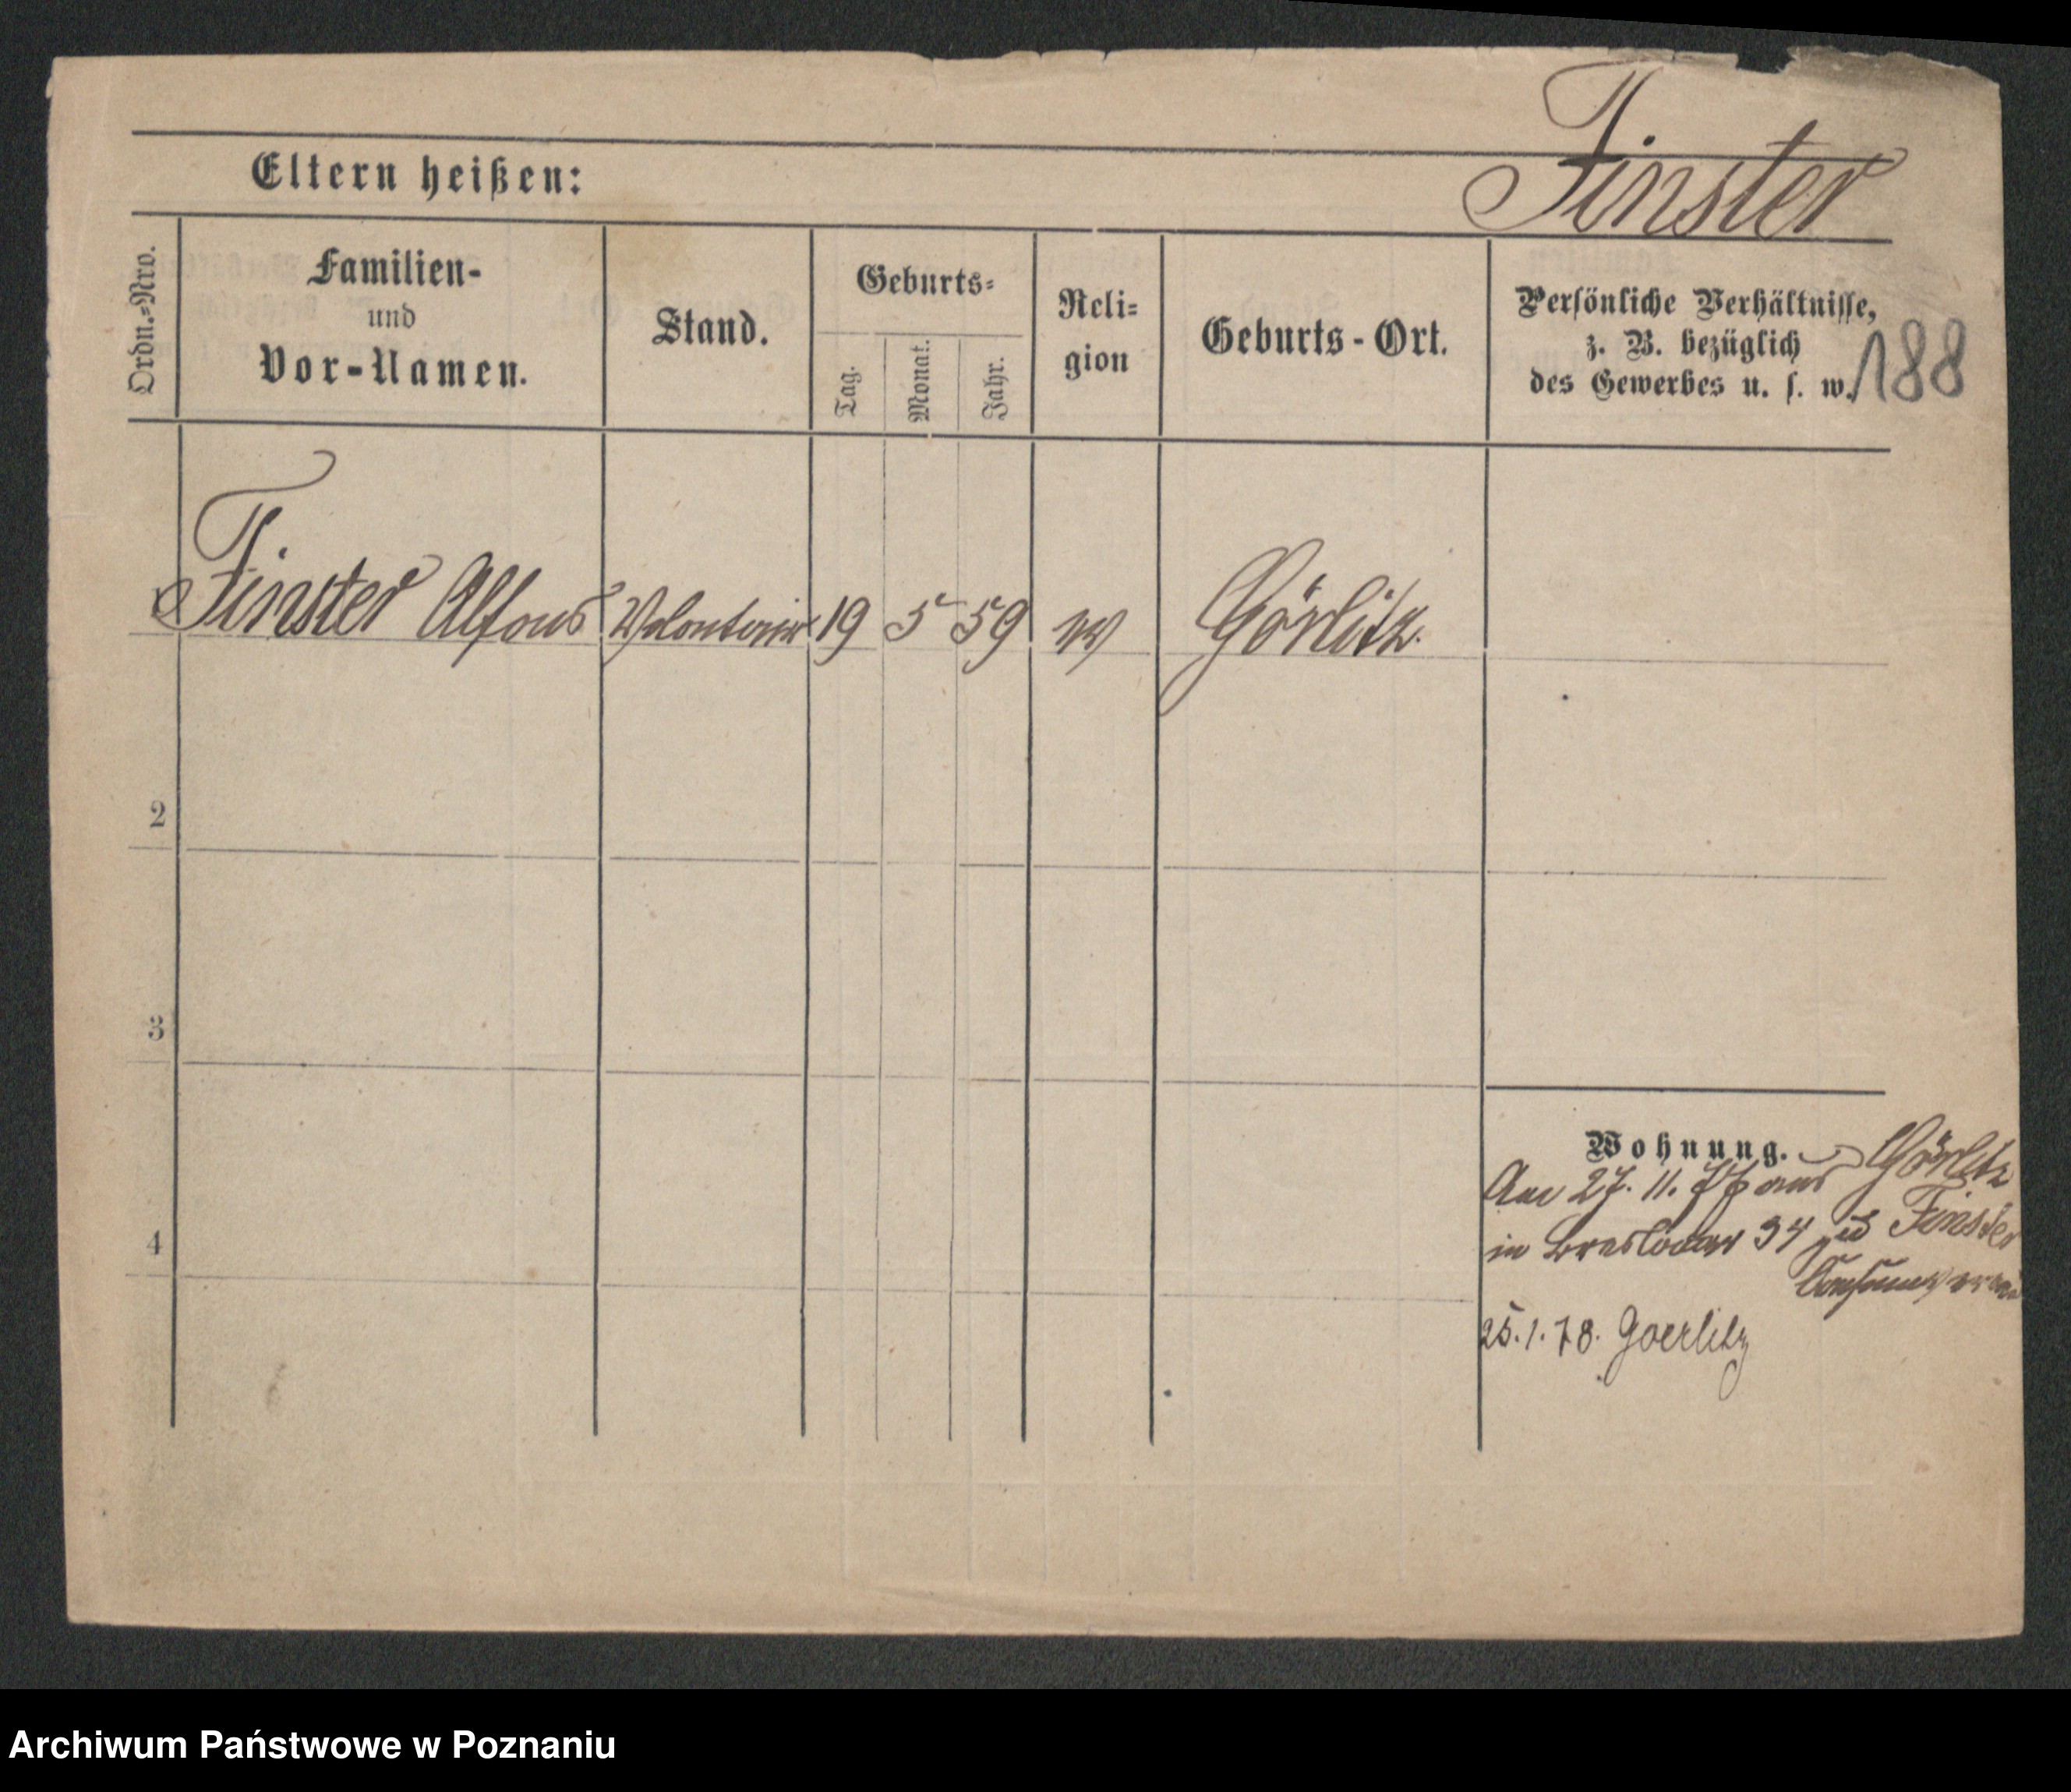 Finster
Eltern heißen:
Ordn.-Nro.
Familien-
und
Vor-Namen.
Stand.
Geburts-
Tag.
Monat.
Jahr.
Reli-
gion
Geburts-Ort.
Persönliche Verhältnisse,
z. B. bezüglich
des Gewerbes u. s. w.
188
1 Finster Alfons Volontair 19 5 59 ev Görlitz.
2
3
4
Wohnung.
Am 27. 11. 77 aus Görlitz
in Breslauer 34 zu Finster
25.1.78. Goerlitz
Archiwum Państwowe w Poznaniu